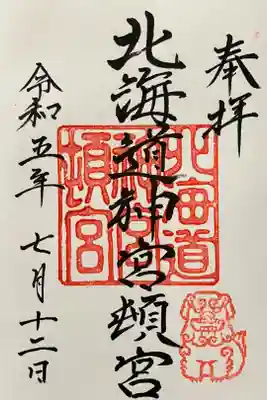 奉拝
北海道神宮頓宮
北海道神宮頓宮
令和五年 七月十二日